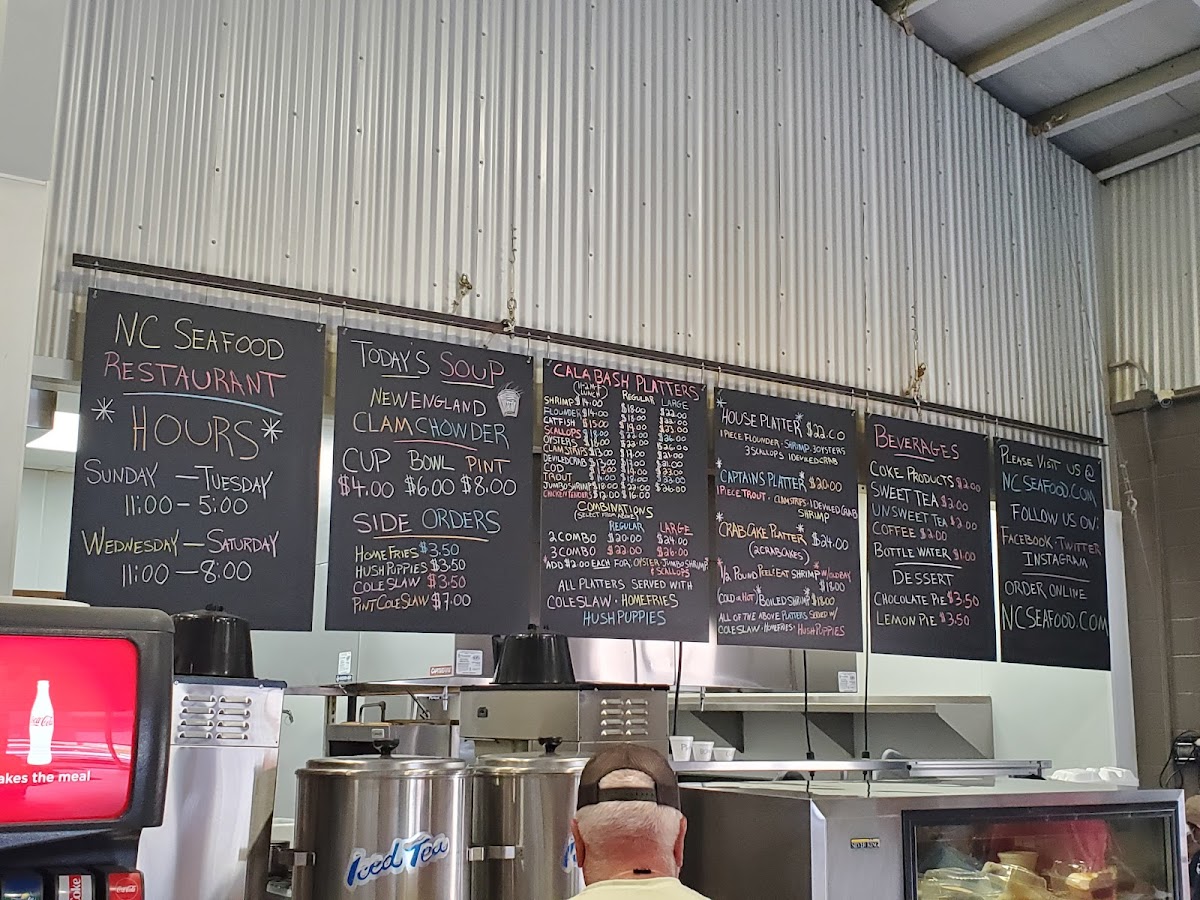 NC SEAFOOD
RESTAURANT
HOURS
SUNDAY — TUESDAY
11:00 - 5:00
WEDNESDAY — SATURDAY
11:00 - 8:00
TODAY'S SOUP
NEW ENGLAND
CLAM CHOWDER
CUP BOWL PINT
$4.00 $6.00 $8.00
SIDE ORDERS
HOME FRIES $3.50
HUSH PUPPIES $3.50
COLE SLAW $3.50
PINT COLE SLAW $7.00
CALABASH PLATTERS
LUNCH REGULAR LARGE
SHRIMP $14.00 $18.00 $22.00
FLOUNDER $14.00
CATFISH $15.00
SCALLOPS
OYSTERS
CLAM STRIPS
DEVILED CRAB
COD
TROUT
JUMBO SHRIMP
CHICKEN TENDERS $12.00 $16.00
COMBINATIONS
(SELECT FROM ABOVE)
REGULAR LARGE
2 COMBO $20.00 $24.00
3 COMBO $22.00 $26.00
*ADD $2.00 EACH FOR OYSTER · JUMBO SHRIMP
& SCALLOPS
ALL PLATTERS SERVED WITH
COLE SLAW · HOME FRIES
HUSH PUPPIES
HOUSE PLATTER $22.00
1 PIECE FLOUNDER · SHRIMP · 3 OYSTERS
3 SCALLOPS 1 DEVILED CRAB
CAPTAINS PLATTER $20.00
1 PIECE TROUT · CLAM STRIPS · 1 DEVILED CRAB
SHRIMP
CRAB CAKE PLATTER $24.00
(2 CRAB CAKES)
1/2 POUND PEEL & EAT SHRIMP W/ OLD BAY
$18.00
(COLD OR HOT) BOILED SHRIMP $18.00
ALL OF THE ABOVE PLATTERS SERVED W/
COLE SLAW · HOME FRIES · HUSH PUPPIES
BEVERAGES
COKE PRODUCTS $2.00
SWEET TEA $2.00
UNSWEET TEA $2.00
COFFEE $2.00
BOTTLE WATER $1.00
DESSERT
CHOCOLATE PIE $3.50
LEMON PIE $3.50
PLEASE VISIT US @
NCSEAFOOD.COM
FOLLOW US ON:
FACEBOOK · TWITTER
INSTAGRAM
ORDER ONLINE
NCSEAFOOD.COM
Coca-Cola
akes the meal
Iced Tea
Coke
Coca-Cola
SILVER KING